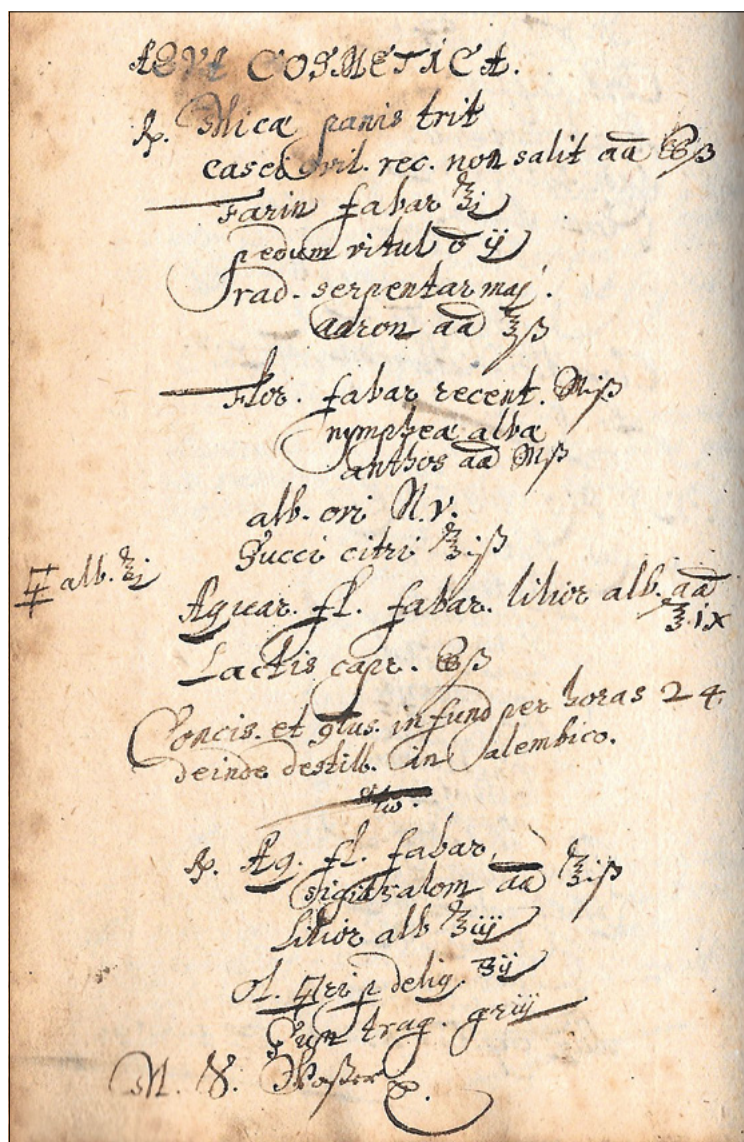 AQVA COSMETICA.
℞. Micæ panis trit
casei ovil. rec. non salit aā ℔ß
Farin fabar ℥j
pedum vitul ij
rad. serpentar maj.
aaron aā ℥ß
Flor. fabar recent. Mjß
nympheæ albæ
anthos aā Mß
alb. ovi N. v.
Succi citri ℥jß
alb. ℥j
Aquar. fl. fabar. lilior alb. aā
℥.ix
Lactis capr. ℔ß
Concis. et infund per horas 24
deinde destill. in alembico.
℞. Aq. fl. fabar,
alb ℥iij
lilior
Ol. delig. ʒij
Gum trag. griij
M. S.